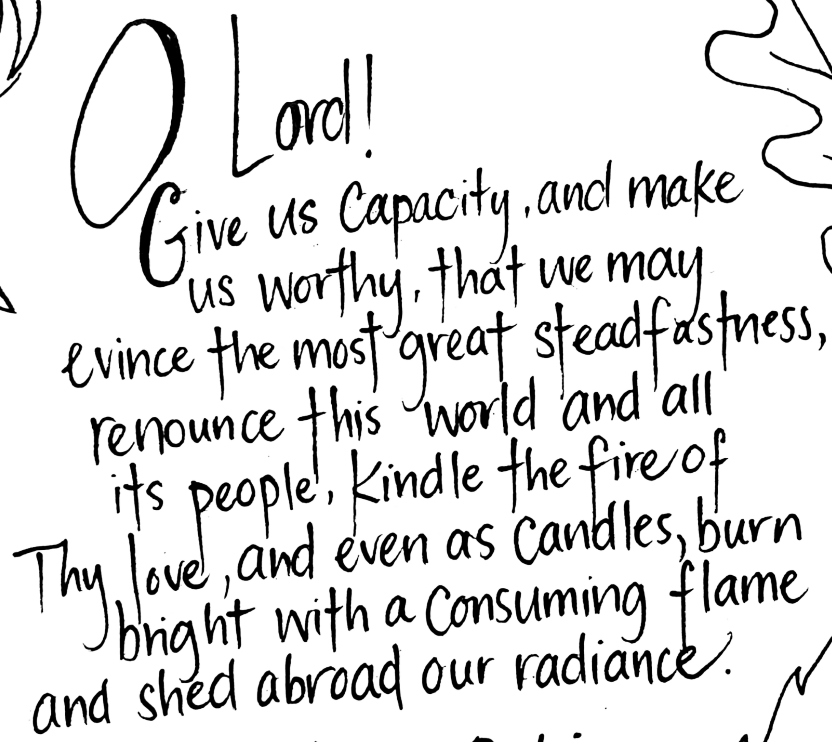 O Lord!
Give us Capacity, and make
us worthy, that we may
evince the most great steadfastness,
renounce this world and all
its people, kindle the fire of
Thy love, and even as candles, burn
bright with a consuming flame
and shed abroad our radiance.